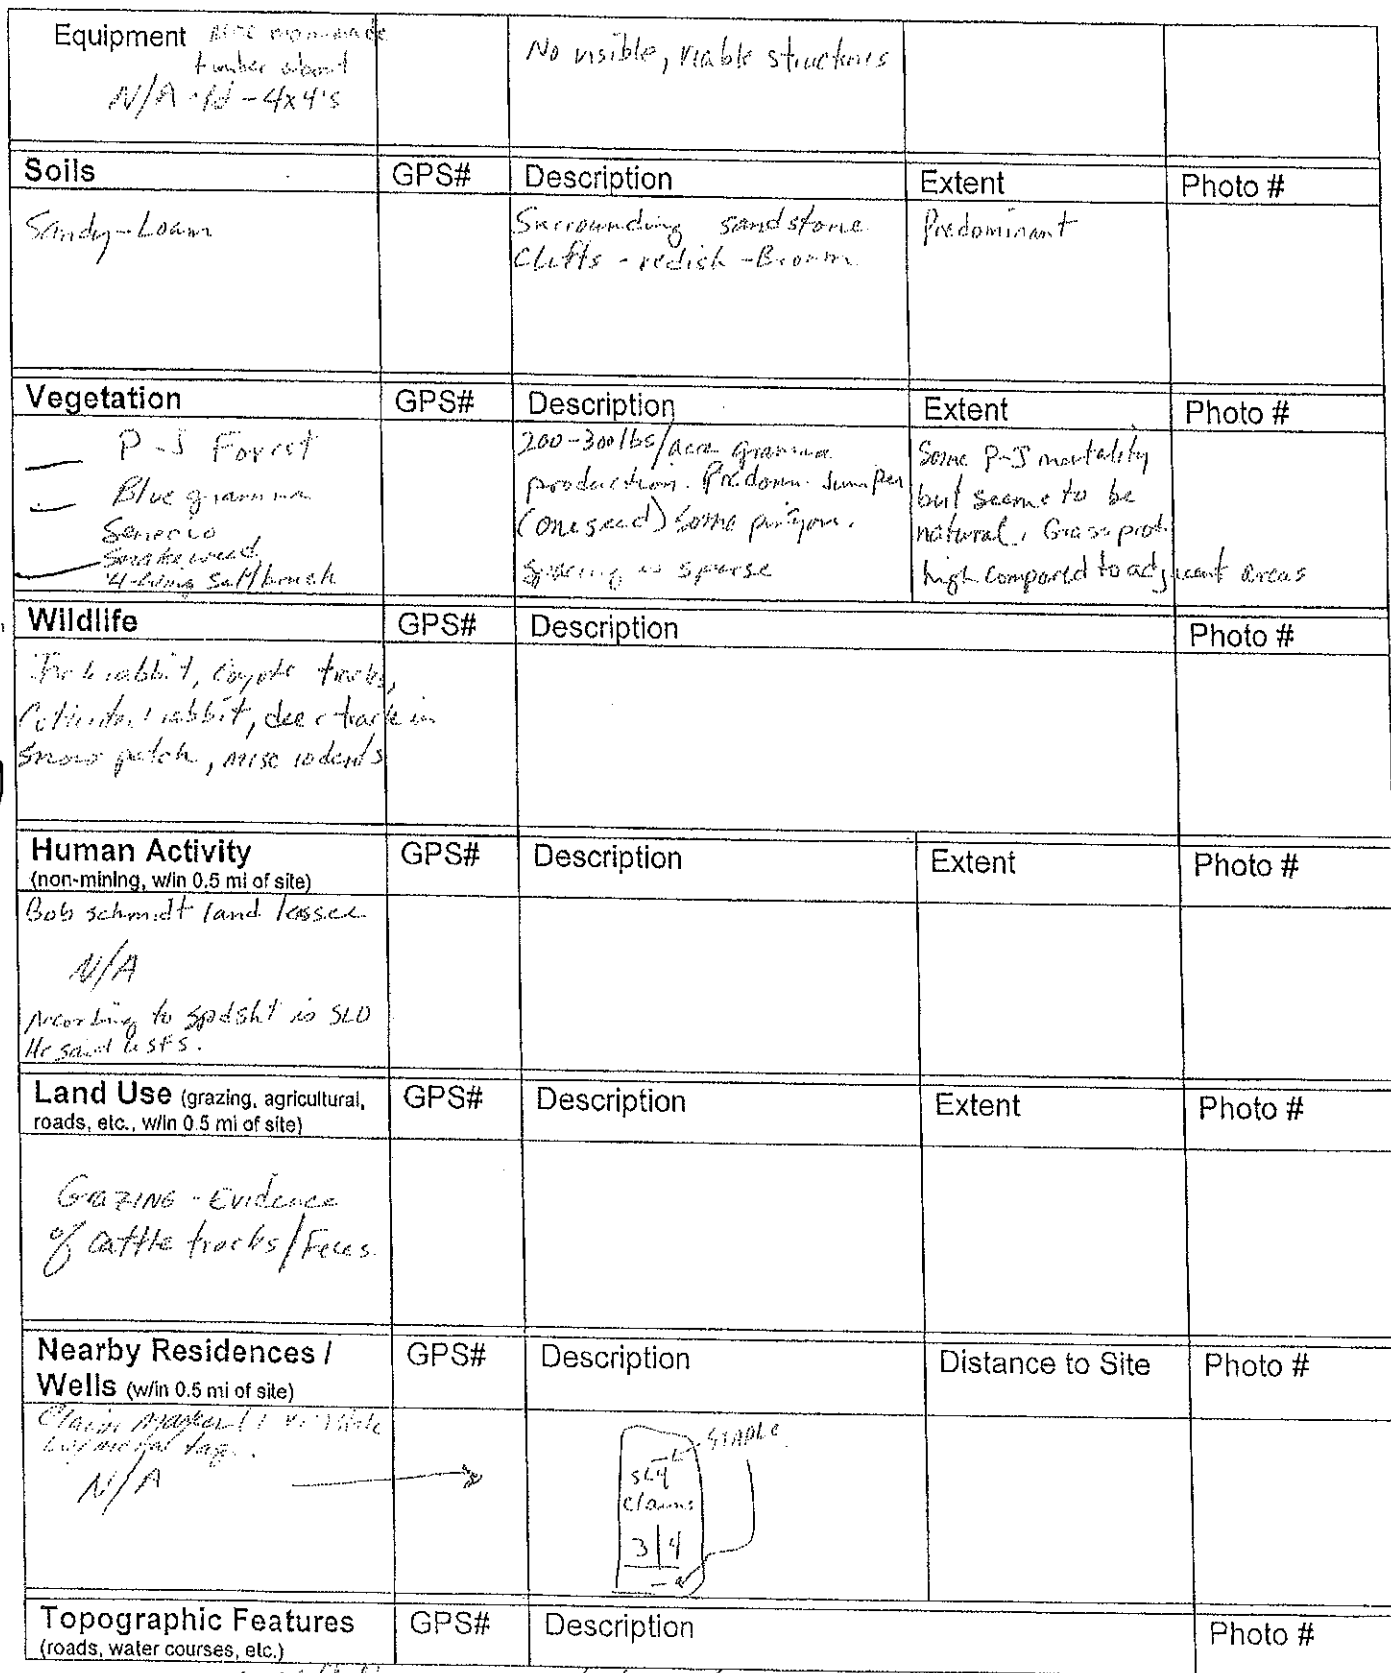 Equipment
timber
N/A - 4x4's
No visible, viable structures
Soils GPS# Description Extent Photo #
Sandy-Loam
Surrounding sandstone
Cliffs - redish-Brown
Predominant
Vegetation GPS# Description Extent Photo #
P-J Forest
Blue gramma
Senecio
Snakeweed
4-wing saltbrush
200-300 lbs/acre gramma
production. Predom. Juniper
(one seed) Some pinyon.
Spacing is sparse
Some P-J mortality
but seems to be
natural. Grass prod.
high compared to adjacent areas
Wildlife GPS# Description Photo #
Jack rabbit, coyote tracks,
Cottontail rabbit, deer track in
snow patch, misc rodents
Human Activity GPS# Description Extent Photo #
(non-mining, w/in 0.5 mi of site)
Bob schmidt land lessee
N/A
According to spdsht is SLO
He said USFS.
Land Use (grazing, agricultural, GPS# Description Extent Photo #
roads, etc., w/in 0.5 mi of site)
GRAZING - Evidence
of cattle tracks/Feces.
Nearby Residences / GPS# Description Distance to Site Photo #
Wells (w/in 0.5 mi of site)
Claim marker
w/metal tag.
N/A
STAPLE
claims
3 | 4
Topographic Features GPS# Description Photo #
(roads, water courses, etc.)